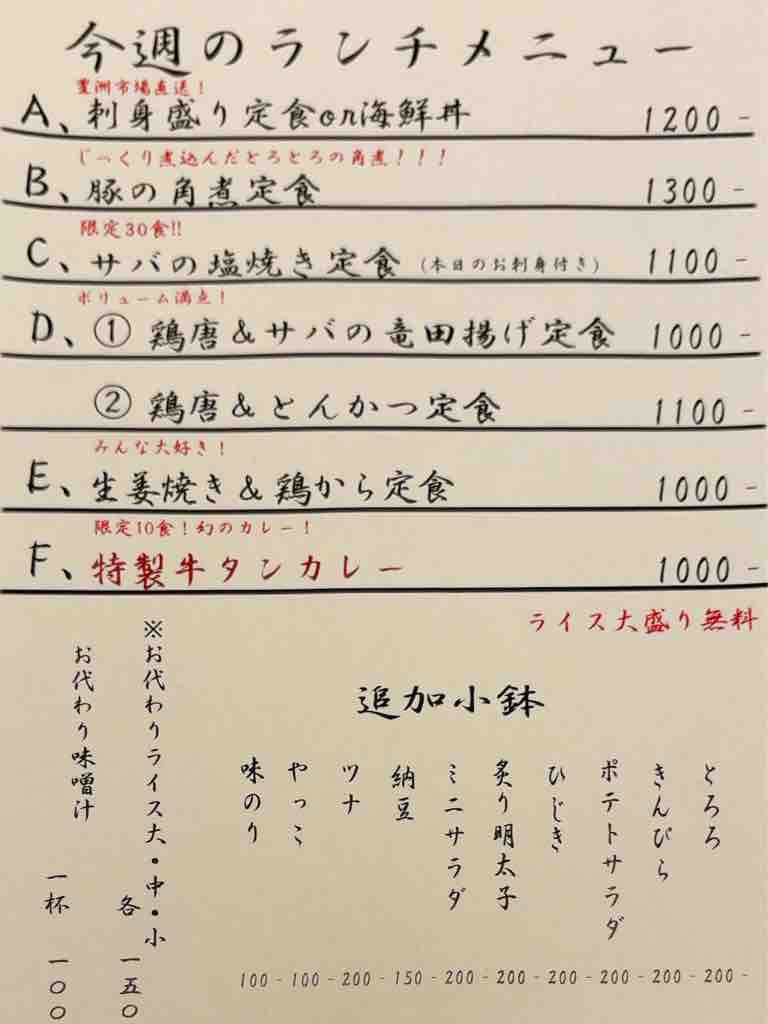 今週のランチメニュー
豊洲市場直送!
A、刺身盛り定食or海鮮丼 1200-
じっくり煮込んだとろとろの角煮!!!
B、豚の角煮定食 1300-
限定30食!!
C、サバの塩焼き定食 (本日のお刺身付き) 1100-
ボリューム満点!
D、① 鶏唐&サバの竜田揚げ定食 1000-
② 鶏唐&とんかつ定食 1100-
みんな大好き!
E、生姜焼き&鶏から定食 1000-
限定10食!幻のカレー!
F、特製牛タンカレー 1000-
ライス大盛り無料
追加小鉢
とろろ 200-
きんぴら 200-
ポテトサラダ 200-
ひじき 200-
炙り明太子 200-
ミニサラダ 200-
納豆 150-
ツナ 200-
やっこ 100-
味のり 100-
※お代わりライス大・中・小
各 一五〇
お代わり味噌汁
一杯 一〇〇